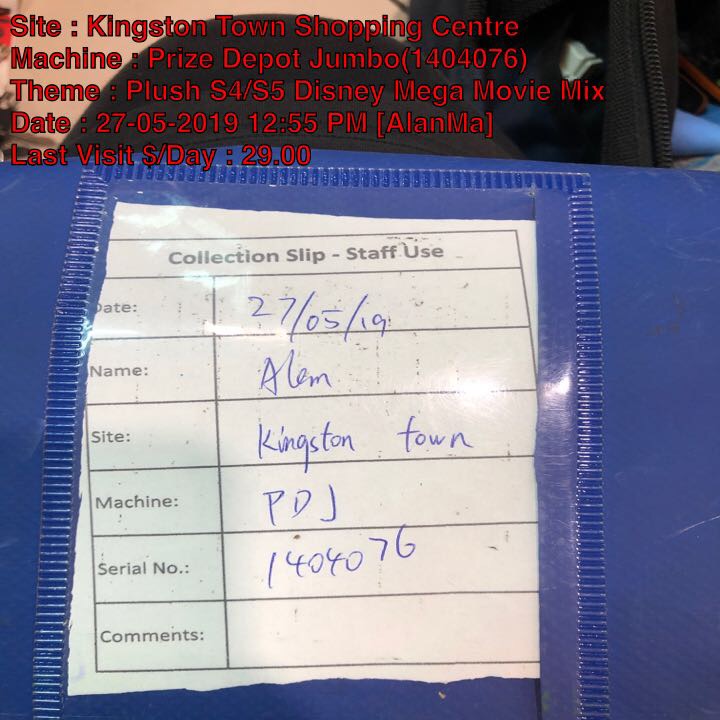 Site : Kingston Town Shopping Centre
Machine : Prize Depot Jumbo(1404076)
Theme : Plush S4/S5 Disney Mega Movie Mix
Date : 27-05-2019 12:55 PM [AlanMa]
Last Visit $/Day : 29.00
Collection Slip - Staff Use
Date: 27/05/19
Name: Alan
Site: Kingston town
Machine: PDJ
Serial No.: 1404076
Comments: